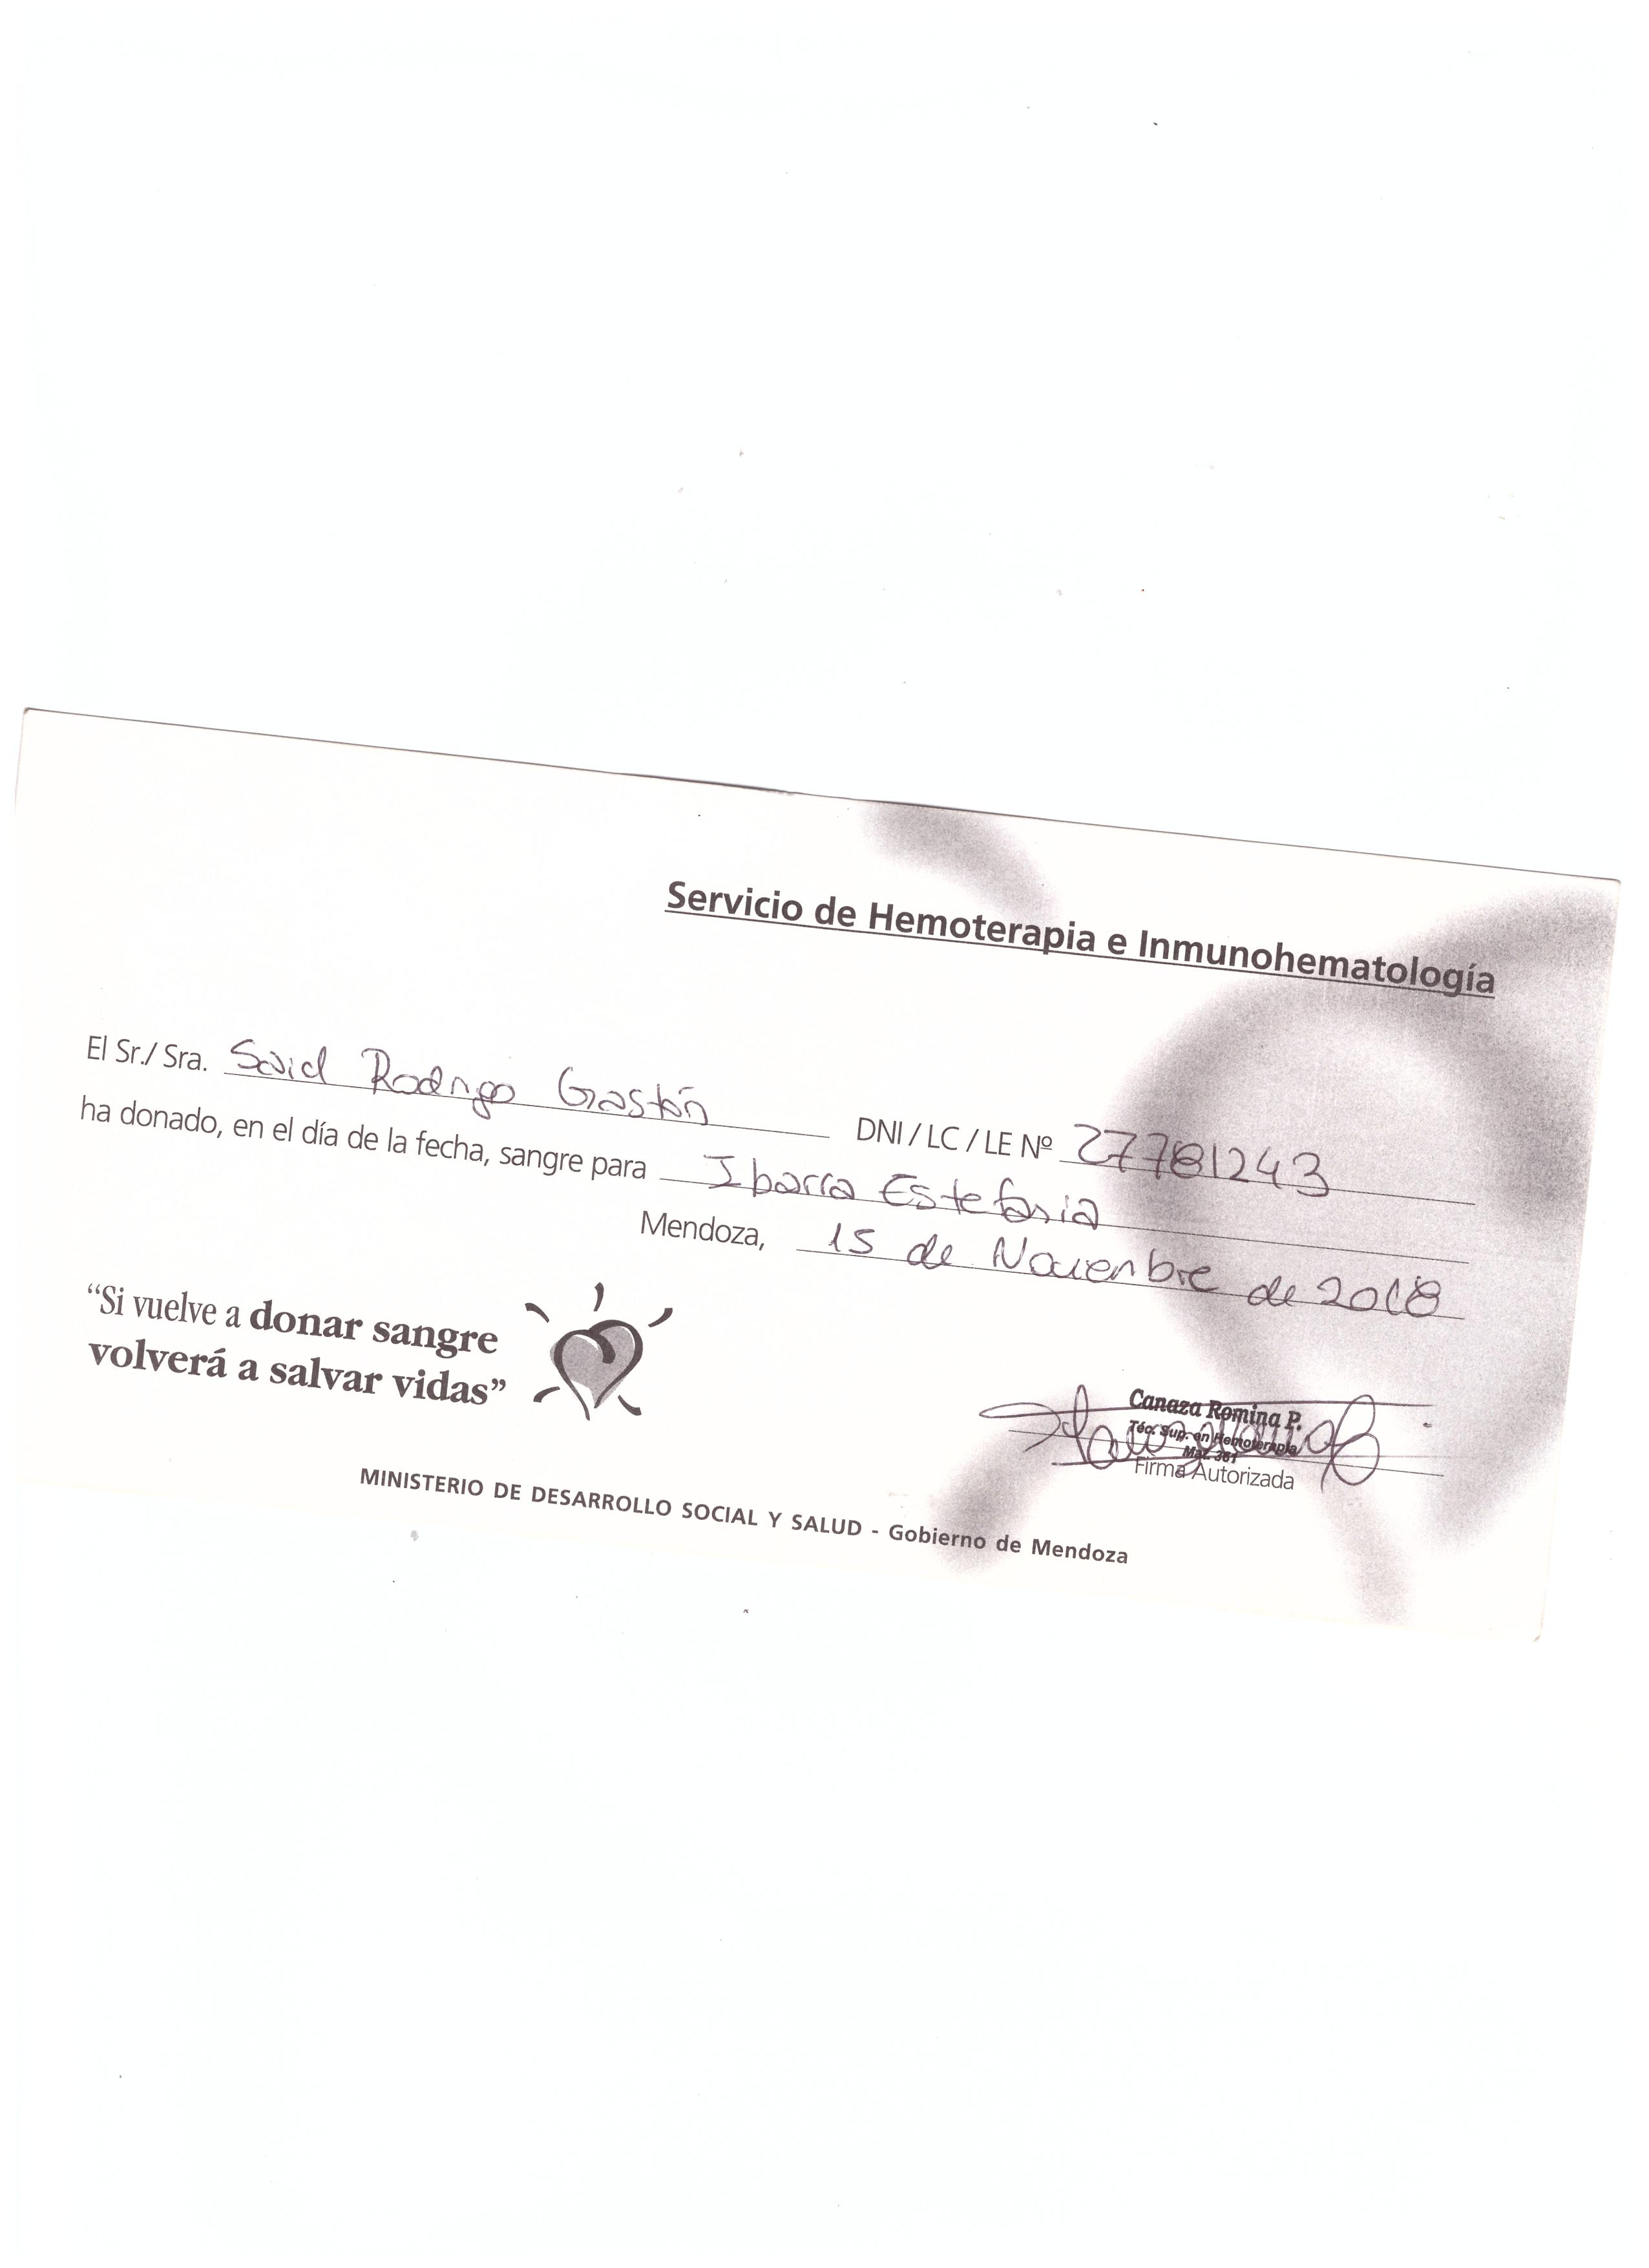 Servicio de Hemoterapia e Inmunohematología
El Sr./ Sra. Said Rodrigo Gastón DNI / LC / LE Nº 27781243
ha donado, en el día de la fecha, sangre para Ibarra Estefania
Mendoza, 15 de Noviembre de 2018
“Si vuelve a donar sangre
volverá a salvar vidas”
Canaza Romina P.
Téc. Sup. en Hemoterapia
Mat. 361
Firma Autorizada
MINISTERIO DE DESARROLLO SOCIAL Y SALUD - Gobierno de Mendoza